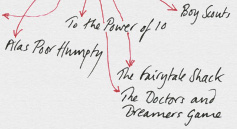 Boy Scouts
To the Power of 10
Alas Poor Humpty
The Fairytale Shack
The Doctors and
Dreamers Game